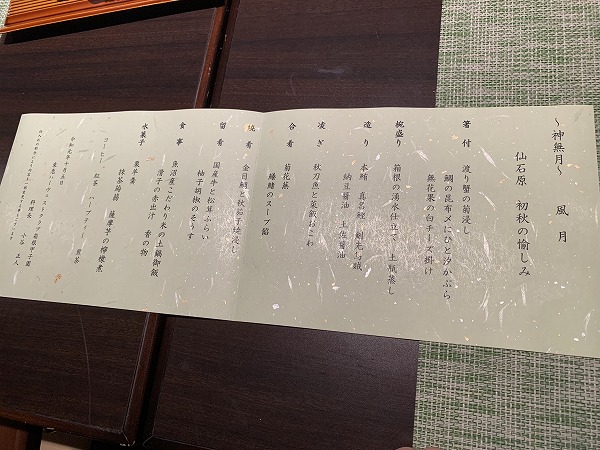 ～神無月～　風　月
仙石原　初秋の愉しみ
箸　付　渡り蟹の菊浸し
鯛の昆布〆にひと汐かぶら
無花果の白チーズ掛け
椀盛り　箱根の湧水仕立て　土瓶蒸し
造　り　本鮪　真名鰹　剣先烏賊
納豆醤油　土佐醤油
凌　ぎ　秋刀魚と菜飯おこわ
合　肴　菊花蒸
鱶鰭のスープ餡
焼　肴　金目鯛と秋茄子
留　肴　国産牛と松茸ふらい
柚子胡椒のそうす
食　事　魚沼産こだわり米の土鍋御飯
滑子の赤出汁　香の物
水菓子　栗羊羹
抹茶蒟蒻　薩摩芋の檸檬煮
コーヒー　紅茶　ハーブティー　煎茶
令和元年十月五日
東急ハーヴェストクラブ箱根甲子園
料理長　小谷　正人